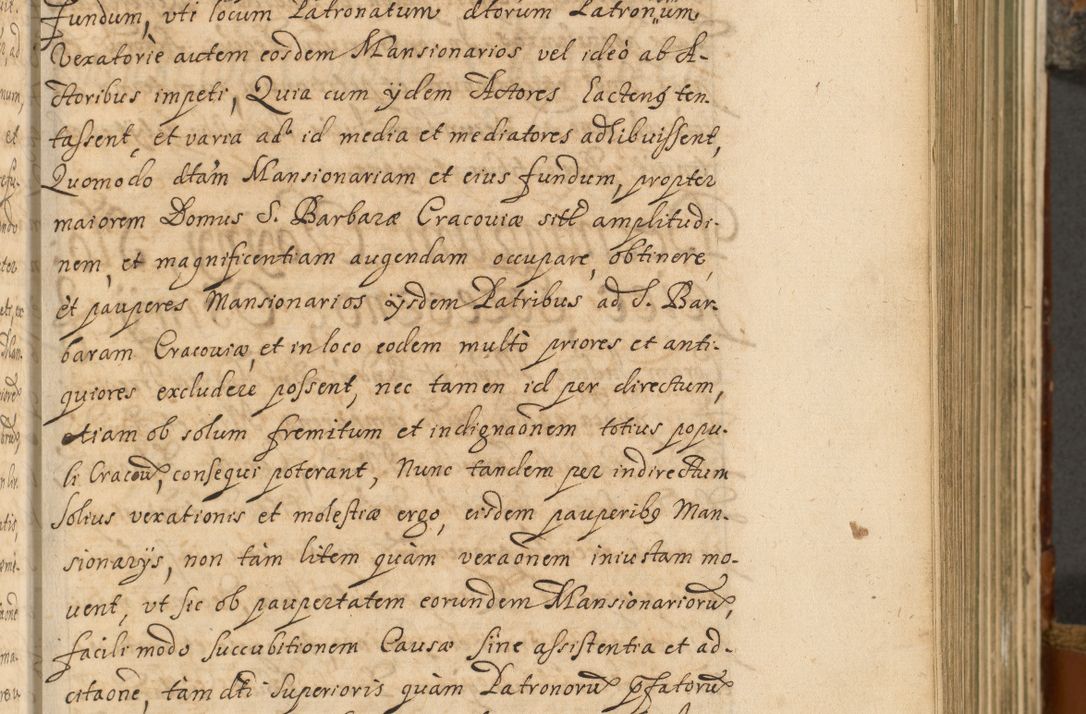 fundum, vti locum Patronatum dtorum Patronum
Vexatorie autem eosdem Mansionarios vel ideò ab A-
ctoribus impeti, Quia cum ijdem Actores hactenq ten-
tassent, et varia ad id media et mediatores adhibuissent,
Quomodo dtam Mansionariam et eius fundum, propter
maiorem Domus S. Barbaræ Cracouiæ sitæ amplitudi-
nem, et magnificentiam augendam occupare, obtinere,
et pauperes Mansionarios ijsdem Patribus ad S. Bar-
baram Cracouiæ, et in loco eodem multò priores et anti-
quiores excludere possent, nec tamen id per directum,
etiam ob solum fremitum et indignaõnem totius popu-
li Cracou, consequi poterant, Nunc tandem per indirectum
solius vexationis et molestiæ ergo, eisdem pauperibq Man-
sionarijs, non tàm litem quàm vexaõnem iniustam mo-
uent, vt sic ob paupertatem eorundem Mansionarioru,
facili modo succubitionem Causæ sine assistentia et ad-
citaõne, tàm dti Superioris quàm Patronoru pfatoru